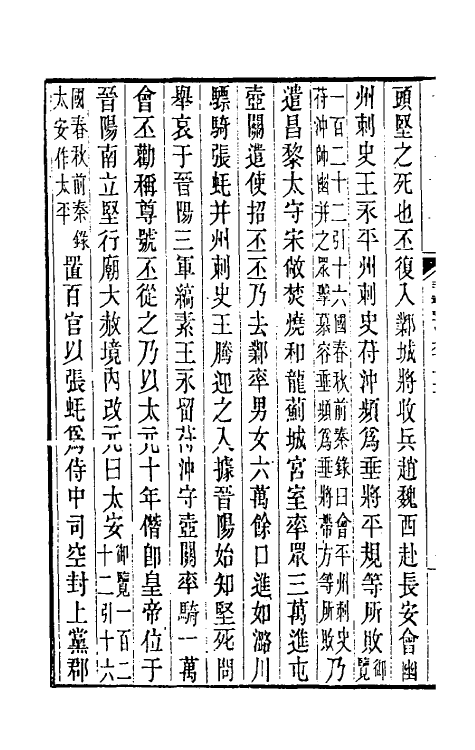 頭堅之死也丕復入鄴城將收兵趙魏西赴長安會幽
州刺史王永平州刺史苻沖頻爲垂將平規等所敗御覽
一百二十二引十六國春秋前秦錄曰會平州刺史
苻沖帥幽并之眾擊慕容垂頻爲垂將帶方等所敗乃
遣昌黎太守宋敞焚燒和龍薊城宮室率眾三萬進屯
壺關遣使招丕丕乃去鄴率男女六萬餘口進如潞川
驃騎張蚝并州刺史王騰迎之入據晉陽始知堅死問
舉哀于晉陽三軍縞素王永留苻沖守壺關率騎一萬
會丕勸稱尊號丕從之乃以太元十年僭卽皇帝位于
晉陽南立堅行廟大赦境內改元曰太安御覽一百二十二引十六
國春秋前秦錄太安作太平置百官以張蚝爲侍中司空封上黨郡